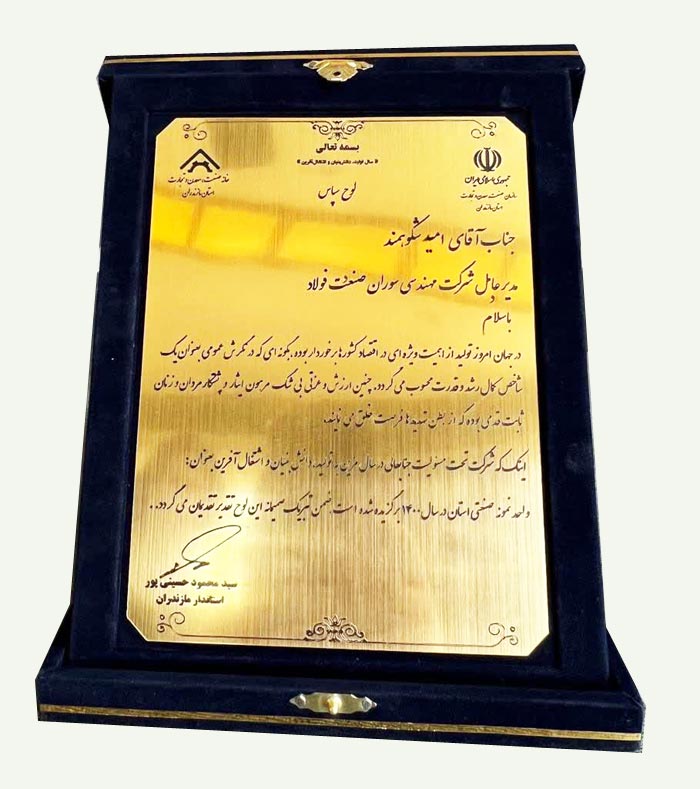 بسمه تعالی
« سال تولید، دانش‌بنیان و اشتغال‌آفرین »
جمهوری اسلامی ایران
سازمان صنعت، معدن و تجارت
استان مازندران
خانه صنعت، معدن و تجارت
استان مازندران
لوح سپاس
جناب آقای امید شکوهمند
مدیرعامل شرکت مهندسی سوران صنعت فولاد
باسلام
در جهان امروز تولید از اهمیت ویژه ای در اقتصاد کشورها برخوردار بوده، بگونه ای که در نگرش عمومی بعنوان یک
شاخص کمال رشد و قدرت محسوب می گردد. چنین ارزش و عزتی بی شک مرهون ایثار و پشتکار مردان و زنان
ثابت قدمی بوده که از بطن تهدیدها فرصت خلق می نمایند.
اینک که شرکت تحت مسئولیت جنابعالی در سال مزین به تولید، دانش بنیان و اشتغال آفرین بعنوان:
واحد نمونه صنعتی استان در سال ۱۴۰۰ برگزیده شده است ضمن تبریک صمیمانه این لوح تقدیر تقدیمتان می گردد. .
سید محمود حسینی پور
استاندار مازندران